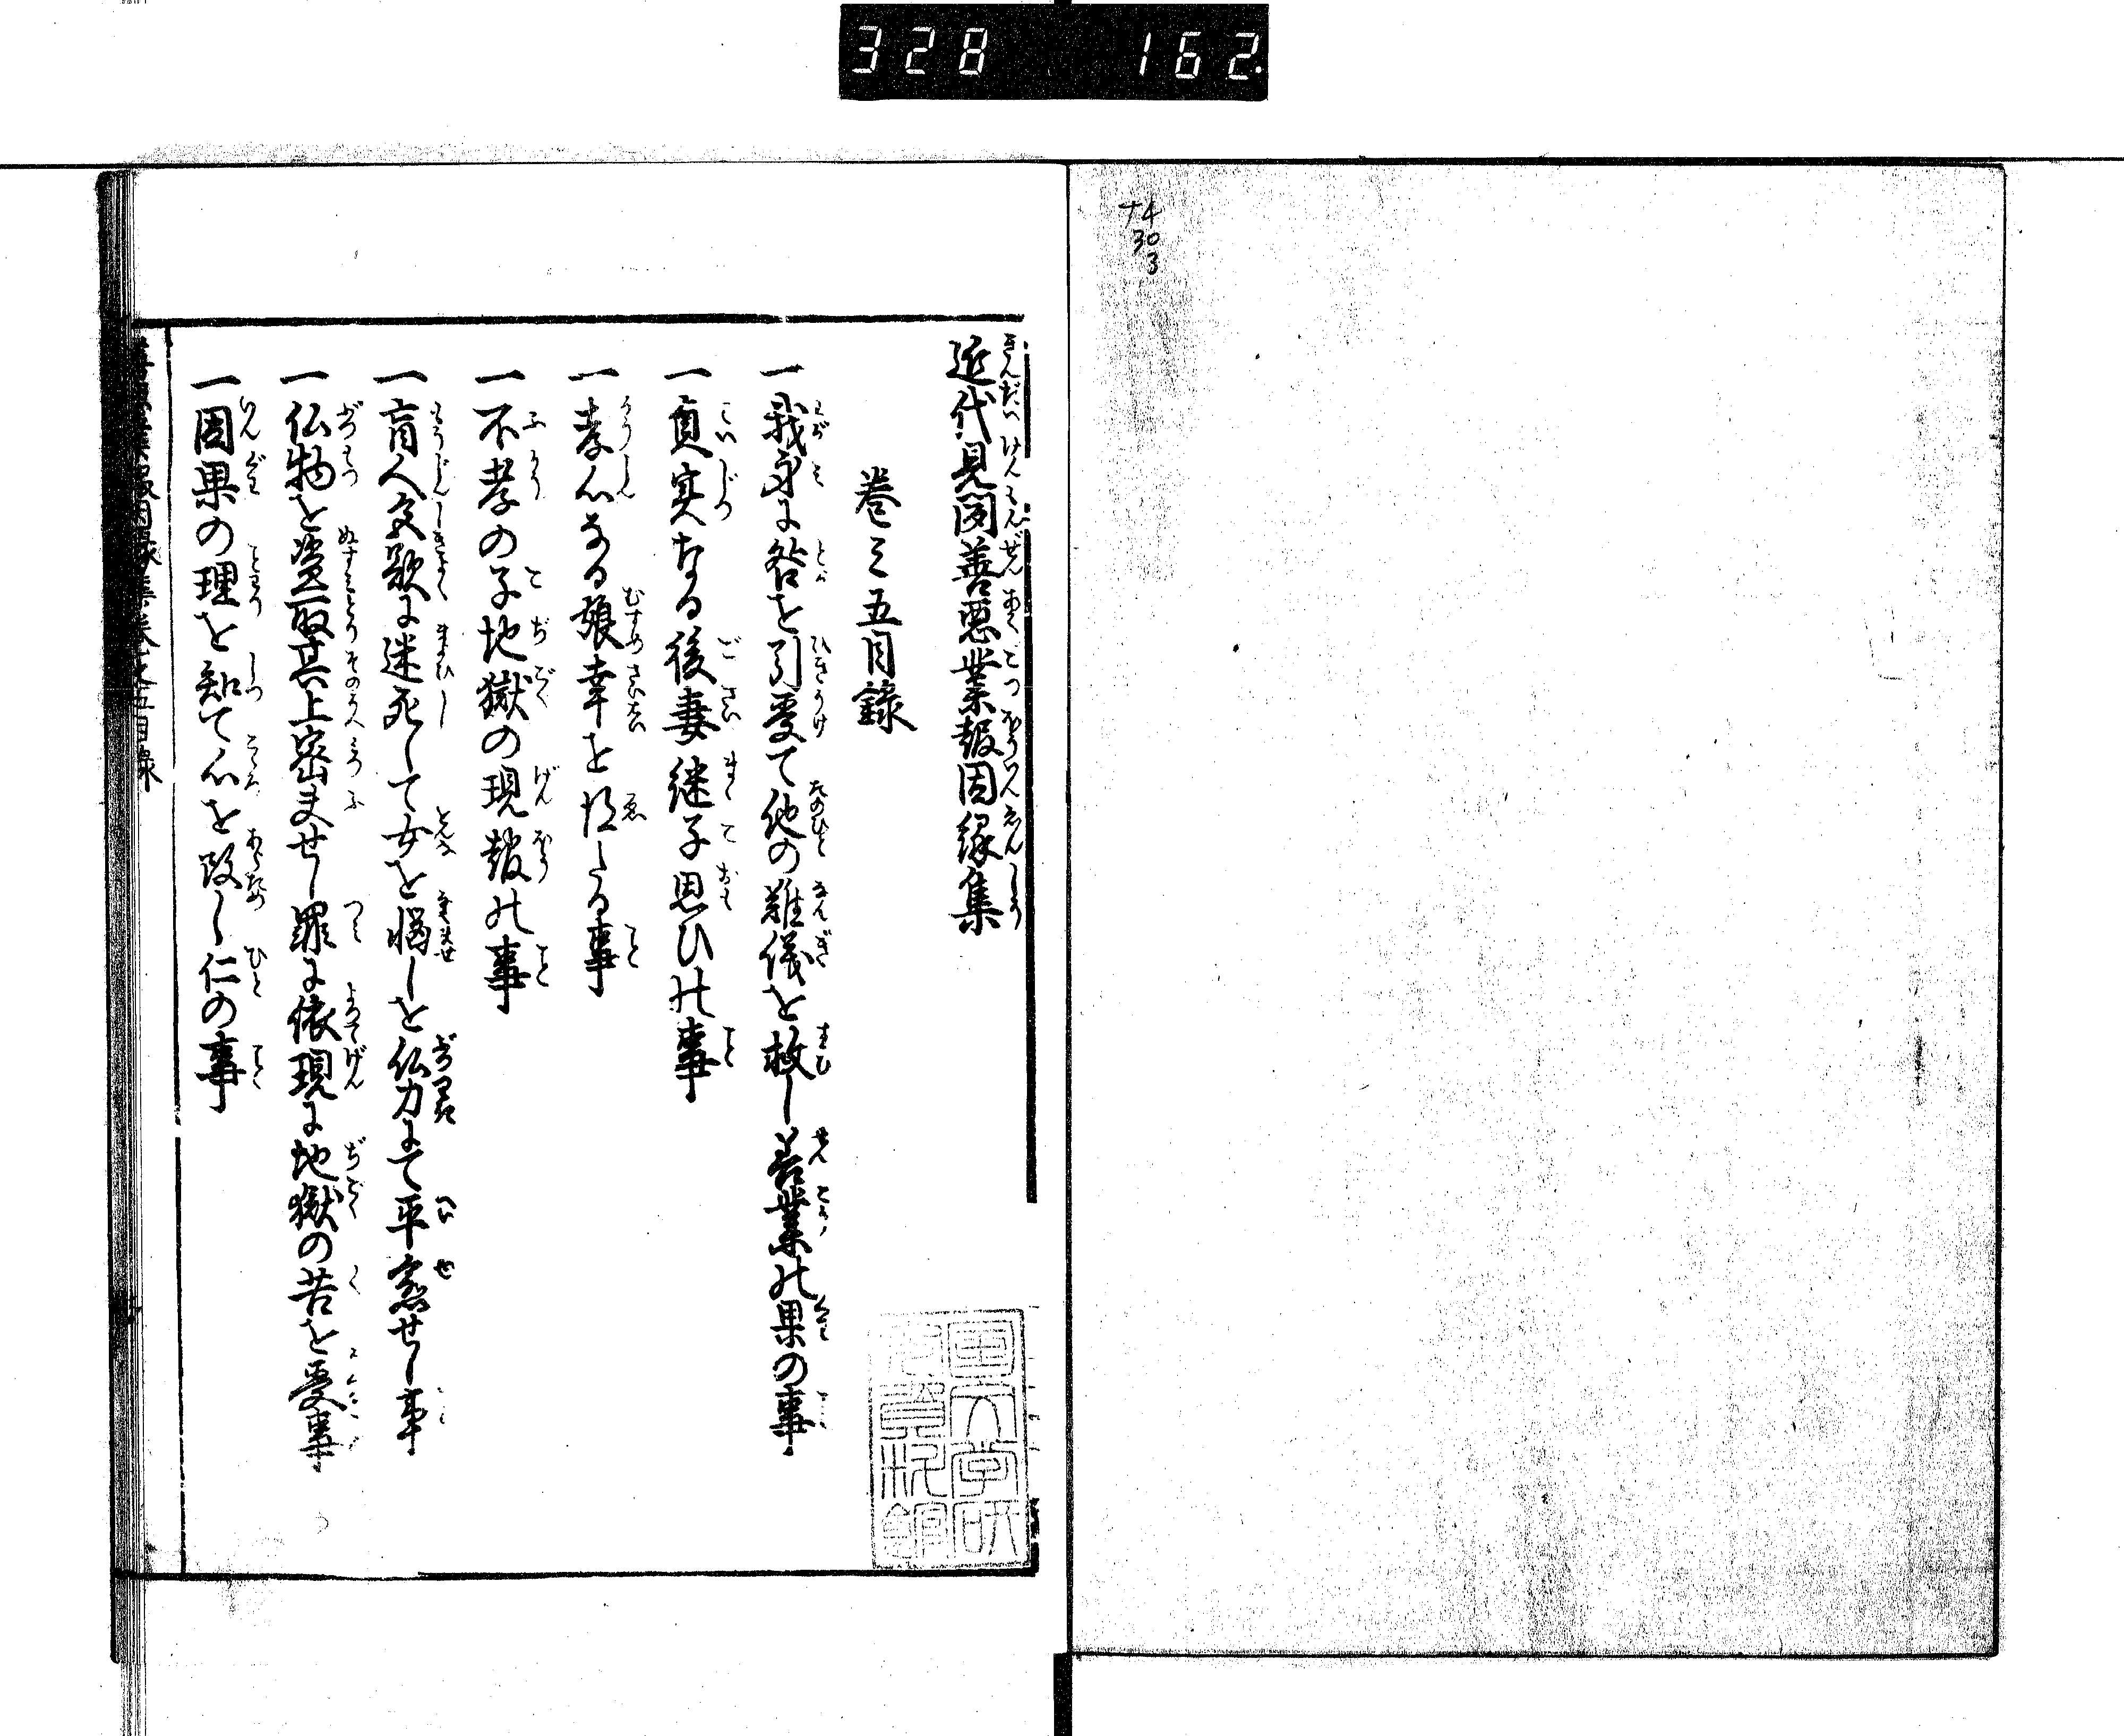 328 162.
74
30
3
近代見聞善悪業報因縁集
巻之五目録
一我身に咎を引受て他の難儀を救し善業の果の事
一貞実なる後妻継子思ひの事
一孝心なる娘幸を得たる事
一不孝の子地獄の現報の事
一盲人文歌に迷死して女を悩しを仏力にて平愈せし事
一仏物を盗取其上密夫せし罪に依現に地獄の苦を受事
一因果の理を知て心を改し仁の事